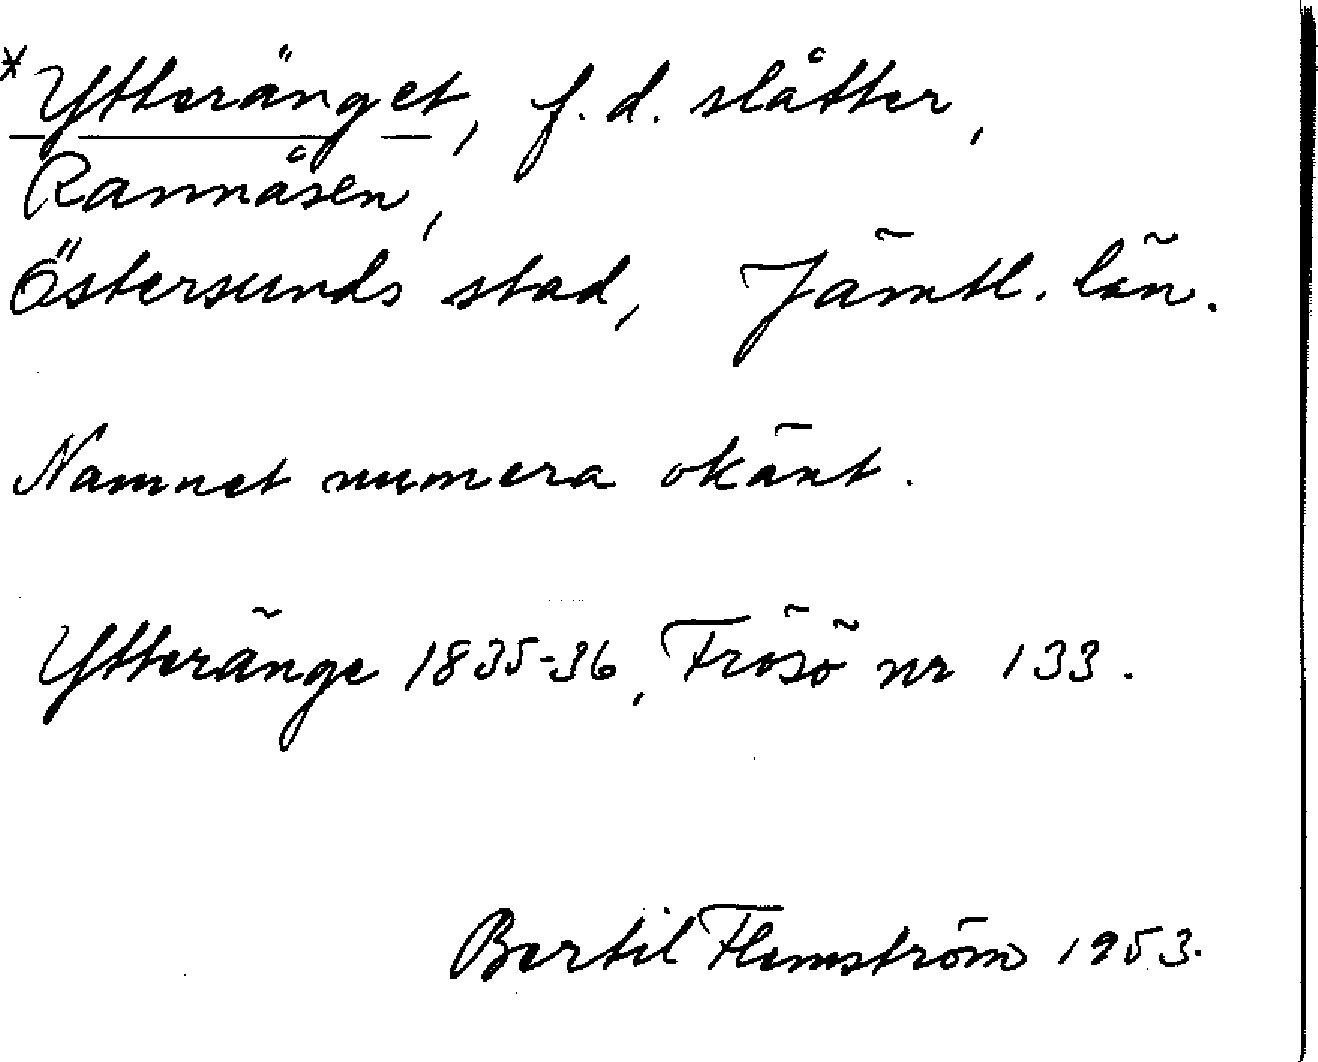 *Ytteränget, f.d. slåtter,
Rannåsen,
Östersunds stad, Jämtl. län.
Namnet numera okänt.
Ytteränge 1835-36, Frösö nr 133.
Bertil Flemström 1953.